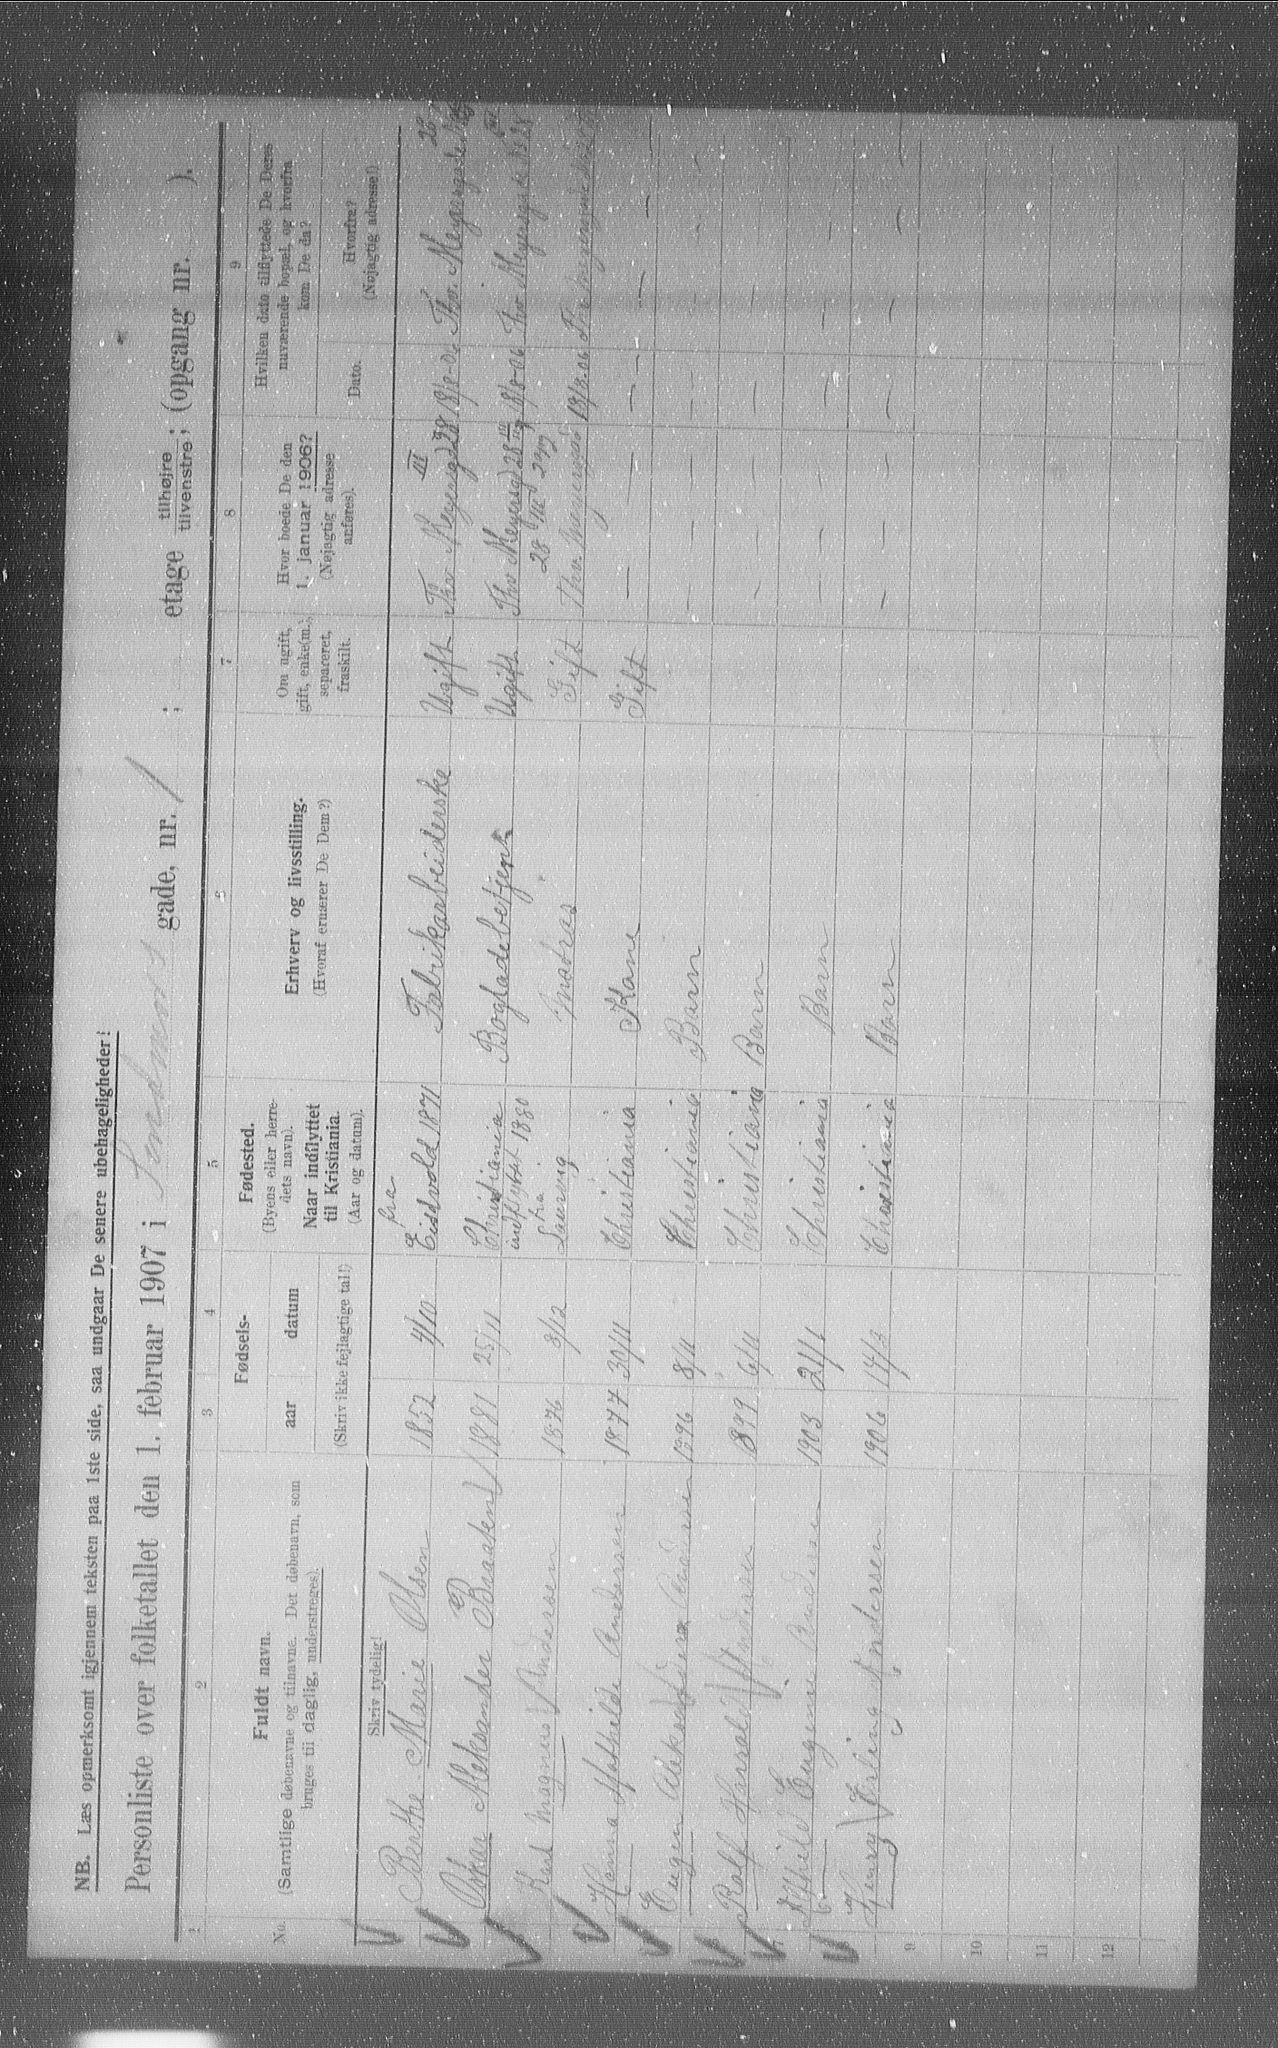 NB. Læs opmerksomt igjennem teksten paa 1ste side, saa undgaar De senere ubehageligheder!
Personliste over folketallet den 1. februar 1907 i Sandnes gade, nr. 1 ; etage tilhøjre tilvenstre; (opgang nr. ).
1 2 3 4 5 6 7 8 9
No.
Fuldt navn.
(Samtlige døbenavne og tilnavne. Det døbenavn, som
bruges til daglig, understreges).
Skriv tydelig!
Fødsels-
aar
datum
(Skriv ikke fejlagtige tal!)
Fødested.
(Byens eller herre-
dets navn).
Naar indflyttet
til Kristiania.
(Aar og datum).
Erhverv og livsstilling.
(Hvoraf ernærer De Dem?)
Om ugift,
gift, enke(m.),
separeret,
fraskilt.
Hvor boede De den
1. januar 1906?
(Nøjagtig adresse
anføres).
Hvilken dato tilflyttede De Deres
nuværende bopæl, og hvorfra
kom De da?
Dato.
Hvorfra?
(Nøjagtig adresse!)
Berthe Marie Olsen 1852 4/10 fra Eidsvold 1871 Fabrikarbeiderske Ugift Thv. Meyersgd 28 III 18/8-06 Thv. Meyersgade
Oskar Aleksander Braaten 1881 25/11 Christiania indflyttet 1880 Bogladebetjent Ugift Thv Meyersgd 28 III 18/8-06 Thv Meyersgade 28
Karl Magnus Andersen 1876 8/12 fra Laurvig Gift Thv. Meyersgd 28 III 18/8-06
Hanna Mathilde Andersen 1877 30/11 Christiania Kone Gift — — — —
Eugen Aleksander Andersen 1896 8/11 Christiania Barn — — — —
Rolf Harald Andersen 1899 6/11 Christiania Barn — — — —
Eugenie Andersen 1903 Christiania Barn — — — —
Henry Erling Andersen 1906 14/3 Christiania Barn — — — —
9
10
11
12